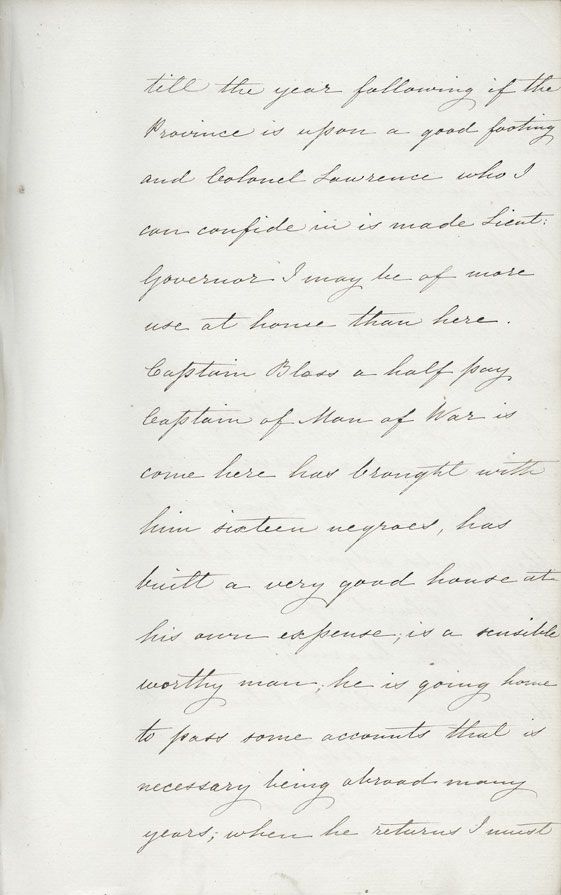 till the year following if the
Province is upon a good footing
and Colonel Lawrence who I
can confide in is made Lieut:
Governor I may be of more
use at house than here.
Captain Bloss a half pay
Captain of Man of War is
come here has brought with
him sixteen negroes, has
built a very good house at
his own expense; is a sensible
worthy man; he is going home
to pass some accounts that is
necessary being abroad many
years; when he returns I must